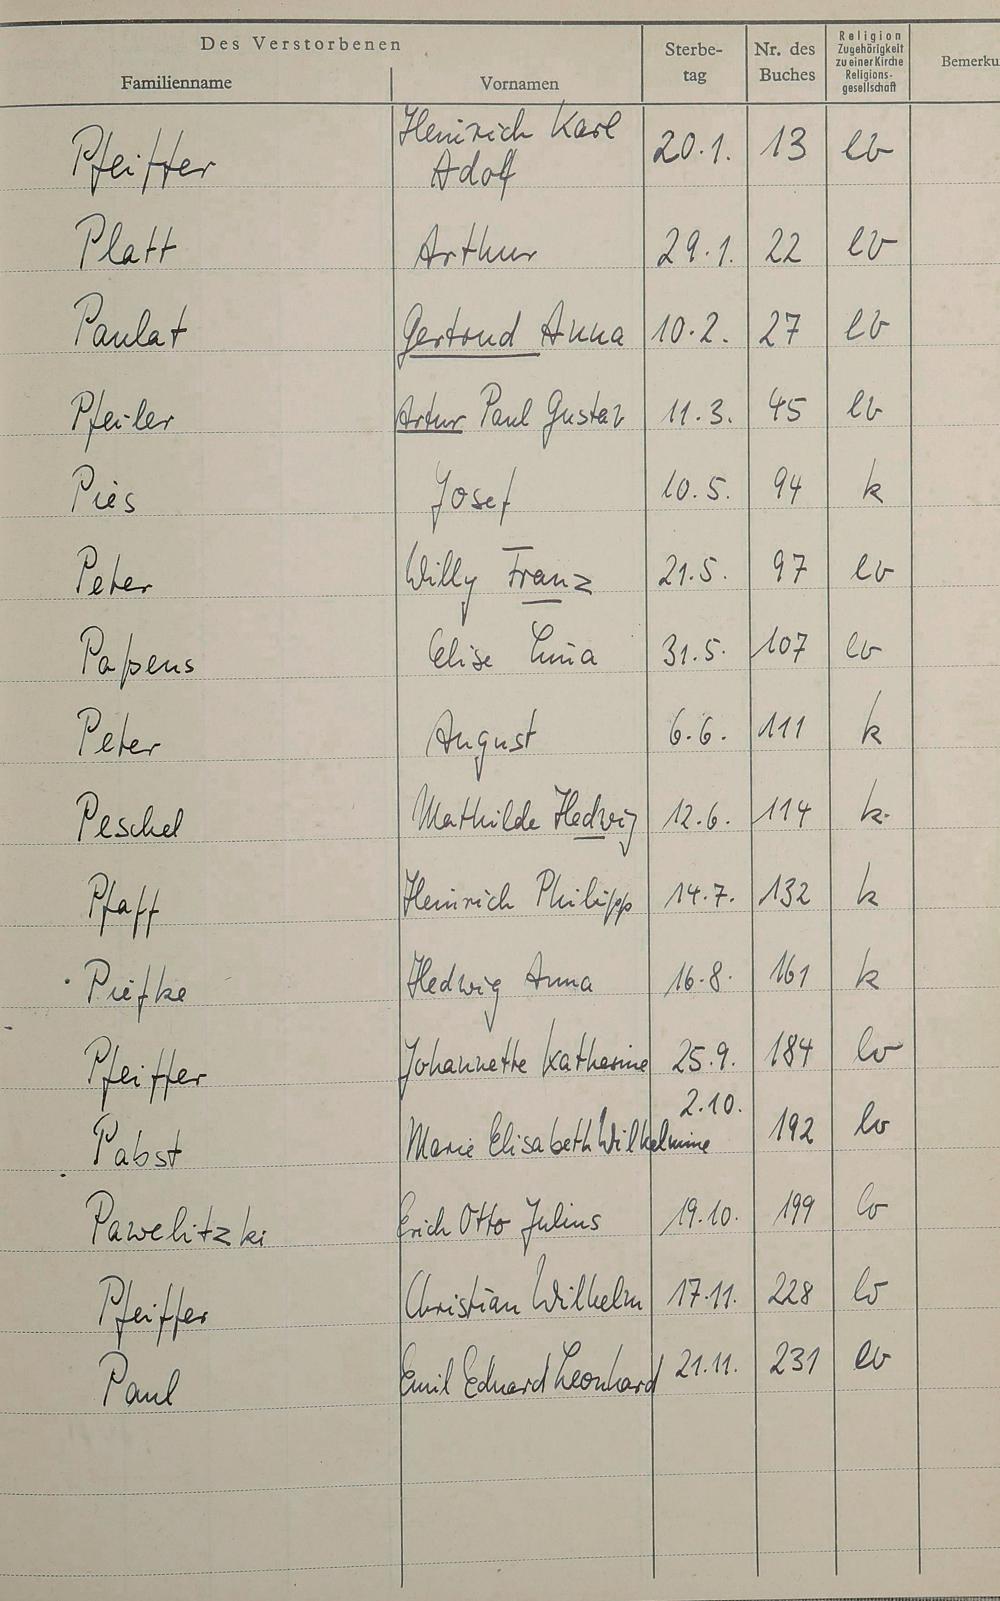 Des Verstorbenen
Familienname Vornamen Sterbe-tag Nr. des Buches Religion Zugehörigkeit zu einer Kirche Religions-gesellschaft Bemerku
Pfeiffer Heinrich Karl Adolf 20.1. 13 ev
Platt Arthur 29.1. 22 ev
Paulat Gertrud Anna 10.2. 27 ev
Pfeiler Artur Paul Gustav 11.3. 45 ev
Pies Josef 10.5. 94 k
Peter Willy Franz 21.5. 97 ev
Paßens Elise Luia 31.5. 107 ev
Peter August 6.6. 111 k
Peschel Mathilde Hedwig 12.6. 114 k.
Pfaff Heinrich Philipp 14.7. 132 k
Piefke Hedwig Anna 16.8. 161 k
Pfeiffer Johannette Katharine 25.9. 184 ev
Pabst Marie Elisabeth Wilhelmine 2.10. 192 ev
Pawelitzki Erich Otto Julius 19.10. 199 ev
Pfeiffer Christian Wilhelm 17.11. 228 ev
Paul Emil Eduard Leonhard 21.11. 231 ev